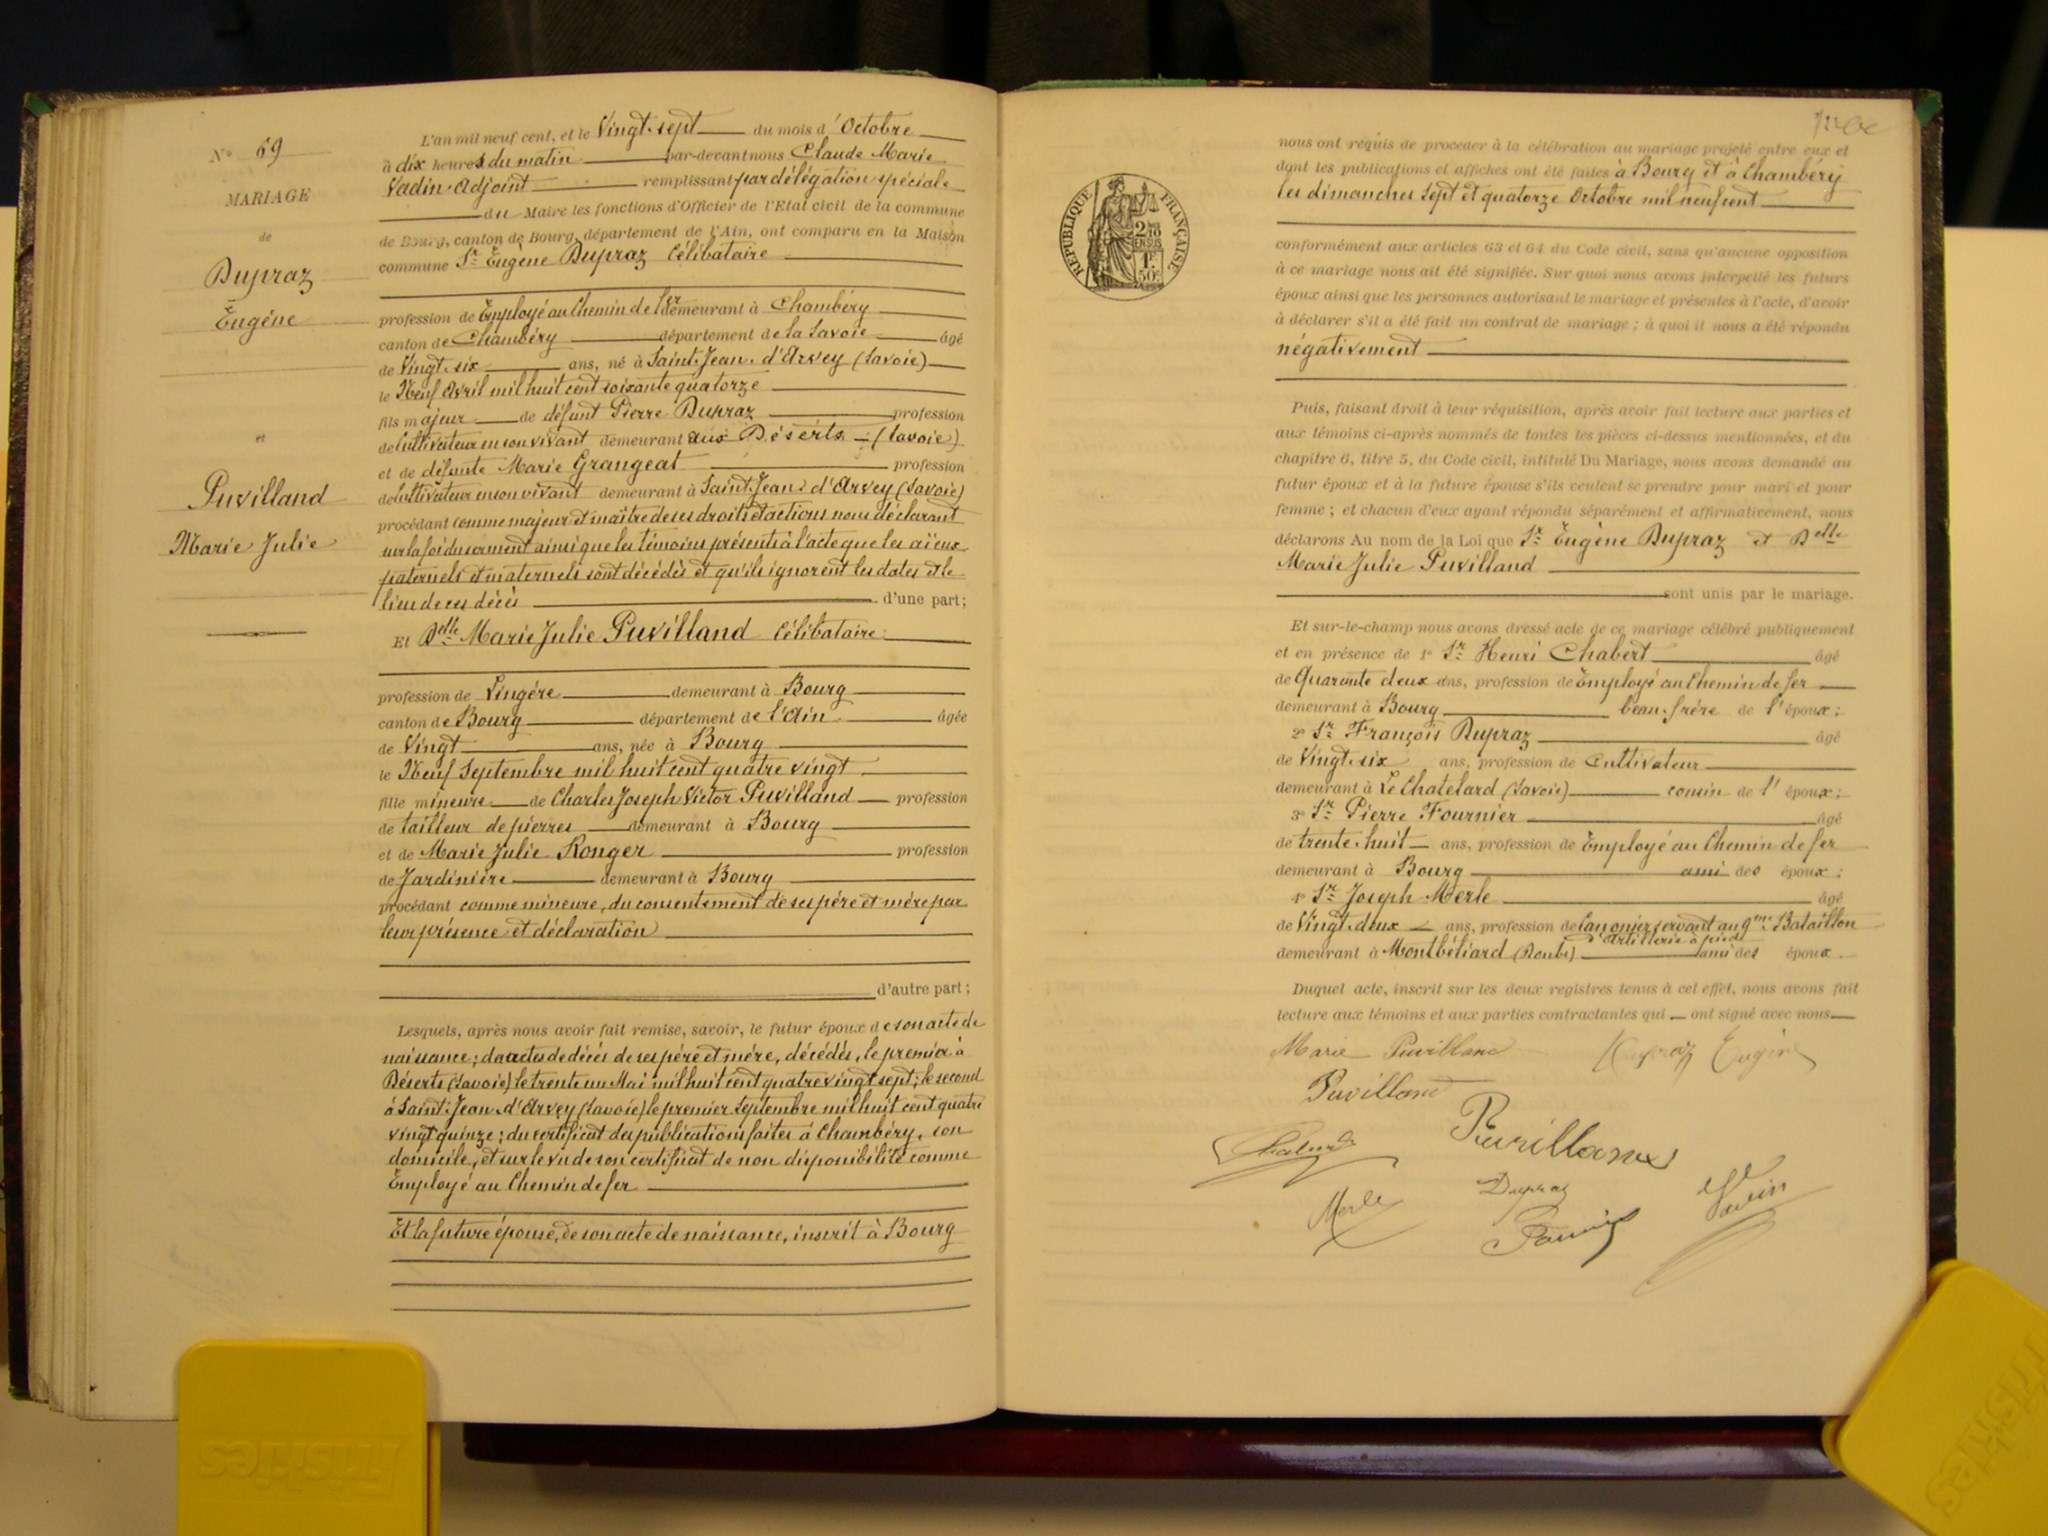 N° 69
MARIAGE
de
Dupraz
Eugène
et
Puvilland
Marie Julie
L'an mil neuf cent, et le Vingt-sept du mois d'Octobre
à dix heures du matin par-devant nous Claude Marie
Vadin Adjoint remplissant par délégation spéciale
du Maire les fonctions d'Officier de l'Etat civil de la commune
de Bourg, canton de Bourg, département de l'Ain, ont comparu en la Maison
commune Sr Eugène Dupraz Célibataire
profession de Employé au Chemin de fer demeurant à Chambéry
canton de Chambéry département de la Savoie âgé
de Vingt-six ans, né à Saint-Jean-d'Arvey (Savoie)
le Neuf Avril mil huit cent soixante quatorze
fils majeur de défunt Pierre Dupraz profession
de Cultivateur en son vivant demeurant aux Déserts (Savoie)
et de défunte Marie Grangeat profession
de Cultivateur en son vivant demeurant à Saint-Jean-d'Arvey (Savoie)
procédant comme majeur et maître de ses droits et actions nous déclarant
sur la foi du serment ainsi que les témoins présents à l'acte que les aïeux
paternels et maternels sont décédés et qu'ils ignorent les dates et le
lieu de ces décès d'une part;
Et Delle Marie Julie Puvilland Célibataire
profession de Lingère demeurant à Bourg
canton de Bourg département de l'Ain âgée
de Vingt ans, née à Bourg
le Neuf Septembre mil huit cent quatre vingt
fille mineure de Charles Joseph Victor Puvilland profession
de tailleur de pierres demeurant à Bourg
et de Marie Julie Ronger profession
de Jardinière demeurant à Bourg
procédant comme mineure, du consentement de ses père et mère par
leur présence et déclaration
d'autre part;
Lesquels, après nous avoir fait remise, savoir, le futur époux de son acte de
naissance; des actes de décès de ses père et mère, décédés, le premier à
Déserts (Savoie) le trente un Mai mil huit cent quatre vingt sept; le second
à Saint-Jean-d'Arvey (Savoie) le premier Septembre mil huit cent quatre
vingt quinze; du certificat des publications faites à Chambéry, son
domicile, et sur le vu de son certificat de non disponibilité comme
Employé au Chemin de fer
Et la future épouse, de son acte de naissance, inscrit à Bourg
RÉPUBLIQUE FRANÇAISE
2/10 EN SUS
1F. 50c
nous ont requis de procéder à la célébration au mariage projeté entre eux et
dont les publications et affiches ont été faites à Bourg et à Chambéry
les dimanches sept et quatorze Octobre mil neuf cent
conformément aux articles 63 et 64 du Code civil, sans qu'aucune opposition
à ce mariage nous ait été signifiée. Sur quoi nous avons interpellé les futurs
époux ainsi que les personnes autorisant le mariage et présentes à l'acte, d'avoir
à déclarer s'il a été fait un contrat de mariage; à quoi il nous a été répondu
négativement
Puis, faisant droit à leur réquisition, après avoir fait lecture aux parties et
aux témoins ci-après nommés de toutes les pièces ci-dessus mentionnées, et du
chapitre 6, titre 5, du Code civil, intitulé Du Mariage, nous avons demandé au
futur époux et à la future épouse s'ils veulent se prendre pour mari et pour
femme; et chacun d'eux ayant répondu séparément et affirmativement, nous
déclarons Au nom de la Loi que Sr Eugène Dupraz et Delle
Marie Julie Puvilland
sont unis par le mariage.
Et sur-le-champ nous avons dressé acte de ce mariage célébré publiquement
et en présence de 1° Sr Henri Chabert âgé
de Quarante deux ans, profession de Employé au Chemin de fer
demeurant à Bourg beau-frère de l'époux;
2° Sr François Dupraz âgé
de Vingt-six ans, profession de Cultivateur
demeurant à Le Chatelard (Savoie) cousin de l'époux;
3° Sr Pierre Fournier âgé
de trente-huit ans, profession de Employé au Chemin de fer
demeurant à Bourg ami des époux;
4° Sr Joseph Merle âgé
de Vingt-deux ans, profession de Canonnier servant au 9me Bataillon
d'Artillerie à pied
demeurant à Montbéliard (Doubs) ami des époux.
Duquel acte, inscrit sur les deux registres tenus à cet effet, nous avons fait
lecture aux témoins et aux parties contractantes qui ont signé avec nous
Marie Puvilland Dupraz Eugène
Puvilland
Chabert Puvilland
Merle Dupraz Vadin
Fournier
Trishties